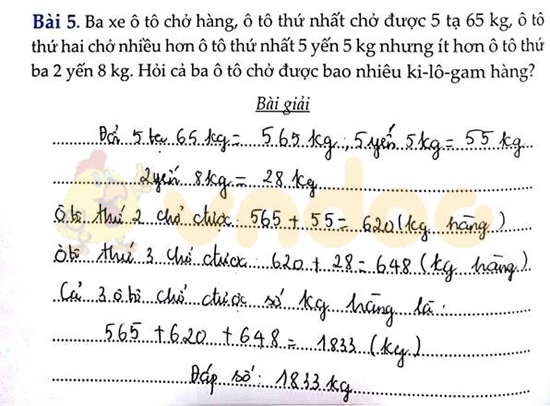 Bài 5. Ba xe ô tô chở hàng, ô tô thứ nhất chở được 5 tạ 65 kg, ô tô
thứ hai chở nhiều hơn ô tô thứ nhất 5 yến 5 kg nhưng ít hơn ô tô thứ
ba 2 yến 8 kg. Hỏi cả ba ô tô chở được bao nhiêu ki-lô-gam hàng?
Bài giải
Đổi 5 tạ 65 kg = 565 kg ; 5 yến 5 kg = 55 kg
2 yến 8 kg = 28 kg
Ô tô thứ 2 chở được 565 + 55 = 620 (kg hàng)
Ôtô thứ 3 chở được: 620 + 28 = 648 (kg hàng)
Cả 3 ô tô chở được số kg hàng là:
565 + 620 + 648 = 1833 (kg)
Đáp số: 1833 kg
vndoc